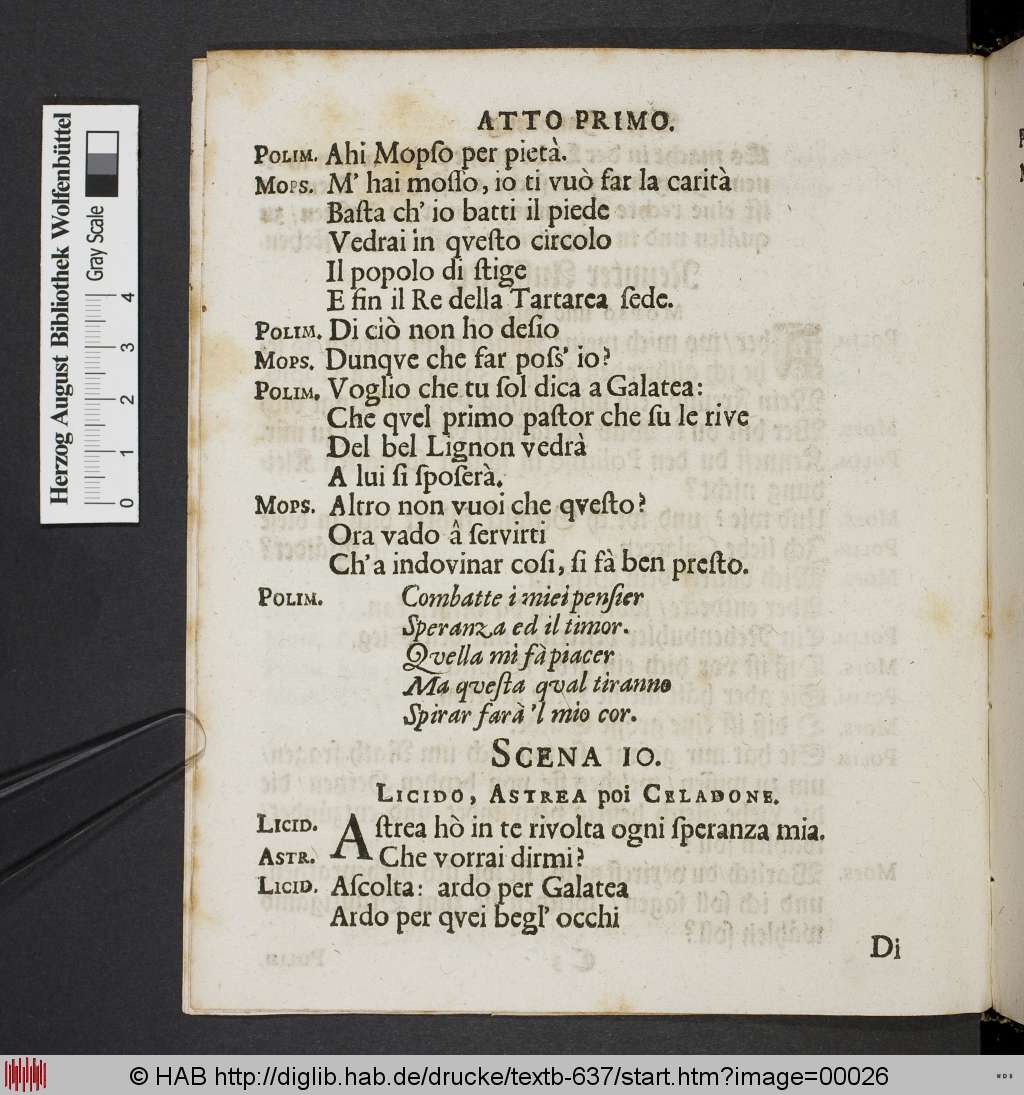 ATTO PRIMO.
POLIM. Ahi Mopſo per pietà.
MOPS. M' hai moſſo, io ti vuò far la carità
Baſta ch' io batti il piede
Vedrai in qveſto circolo
Il popolo di ſtige
E fin il Re della Tartarea ſede.
POLIM. Di ciò non ho deſio
MOPS. Dunqve che far poſſ' io?
POLIM. Voglio che tu ſol dica a Galatea:
Che qvel primo paſtor che ſu le rive
Del bel Lignon vedrà
A lui ſi ſpoſerà.
MOPS. Altro non vuoi che qveſto?
Ora vado â ſervirti
Ch'a indovinar coſi, ſi fà ben preſto.
POLIM. Combatte i miei penſier
Speranza ed il timor.
Qvella mi fà piacer
Ma qveſta qval tiranno
Spirar farà 'l mio cor.
SCENA 10.
LICIDO, ASTREA poi CELADONE.
LICID. Aſtrea hò in te rivolta ogni ſperanza mia.
ASTR. Che vorrai dirmi?
LICID. Aſcolta: ardo per Galatea
Ardo per qvei begl' occhi
Di
Herzog August Bibliothek Wolfenbüttel
Gray Scale
0 1 2 3 4
© HAB http://diglib.hab.de/drucke/textb-637/start.htm?image=00026
WDB